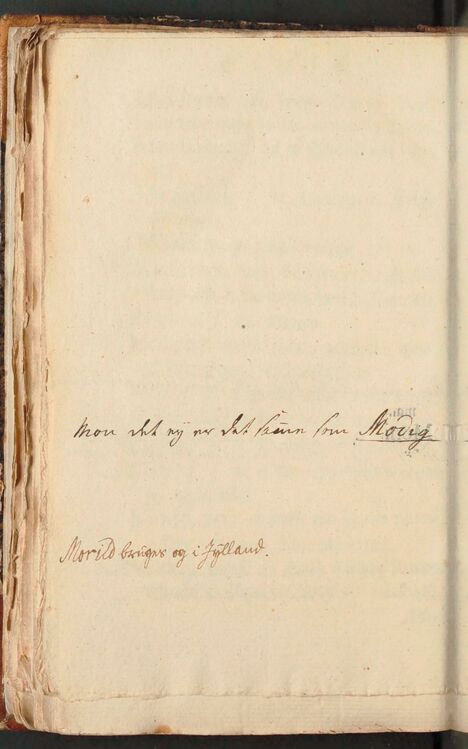 Mon det ey er det samme som Modig
Morild bruges og i Jylland.